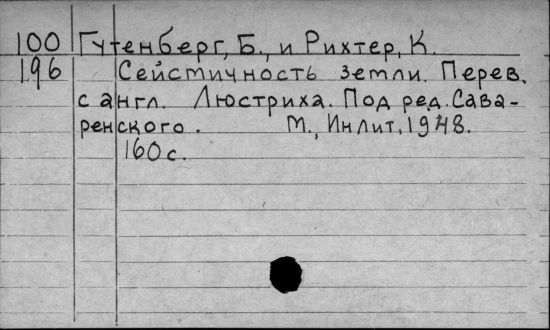 100 Гутенберг, Б., и Рихтер, К.
196 Сейсмичность земли. Перев.
с англ. Люстриха. Под ред. Сава-
ренского. М., Инлит, 1948.
160 с.